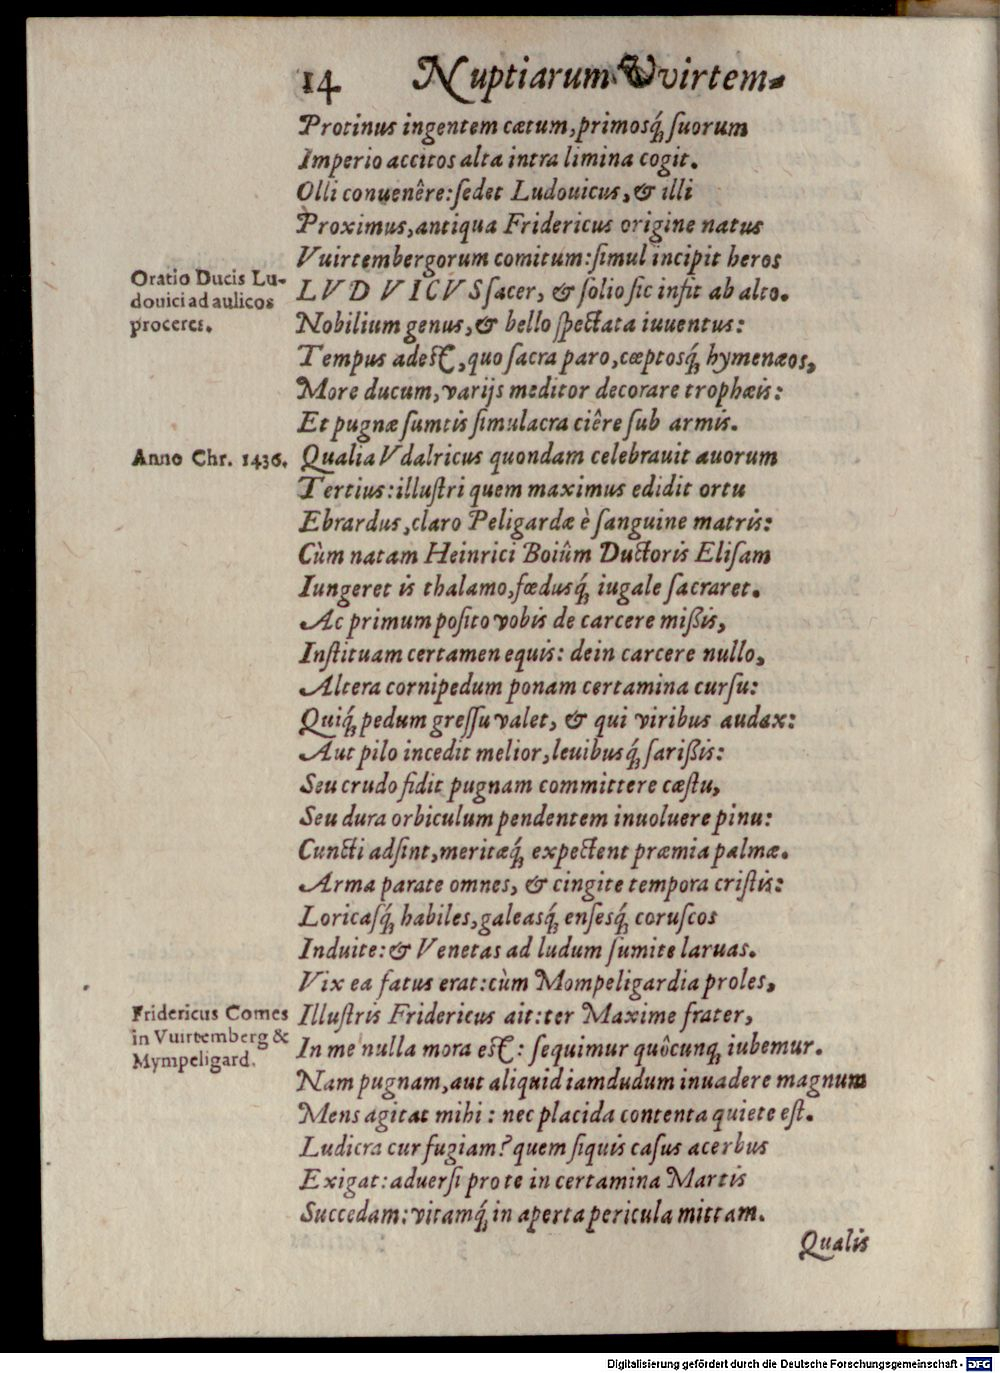 14 Nuptiarum VVvirtem-
Protinus ingentem cætum, primosq́; ſuorum
Imperio accitos alta intra limina cogit.
Olli conuenêre: ſedet Ludouicus, & illi
Proximus, antiqua Fridericus origine natus
Vuirtembergorum comitum: ſimul incipit heros
Oratio Ducis Lu-
douici ad aulicos
proceres.
LVDVICVS ſacer, & ſolio ſic infit ab alto.
Nobilium genus, & bello ſpectata iuuentus:
Tempus adest, quo ſacra paro, cœptosq́; hymenæos,
More ducum, varijs meditor decorare trophæis:
Et pugnæ ſumtis ſimulacra ciêre ſub armis.
Anno Chr. 1436.
Qualia Vdalricus quondam celebrauit auorum
Tertius: illuſtri quem maximus edidit ortu
Ebrardus, claro Peligardæ è ſanguine matris:
Cùm natam Heinrici Boiûm Ductoris Eliſam
Iungeret is thalamo, fœdusq́; iugale ſacraret.
Ac primum poſito vobis de carcere mißis,
Inſtituam certamen equis: dein carcere nullo,
Altera cornipedum ponam certamina curſu:
Quiq́; pedum greſſu valet, & qui viribus audax:
Aut pilo incedit melior, leuibusq́; ſarißis:
Seu crudo fidit pugnam committere cæſtu,
Seu dura orbiculum pendentem inuoluere pinu:
Cuncti adſint, meritæq́; expectent præmia palmæ.
Arma parate omnes, & cingite tempora criſtis:
Loricaſq́; habiles, galeasq́; enſesq́; coruſcos
Induite: & Venetas ad ludum ſumite laruas.
Vix ea fatus erat: cùm Mompeligardia proles,
Fridericus Comes
in Vuirtemberg &
Mympeligard.
Illuſtris Fridericus ait: ter Maxime frater,
In me nulla mora est: ſequimur quôcunq; iubemur.
Nam pugnam, aut aliquid iamdudum inuadere magnum
Mens agitat mihi: nec placida contenta quiete eſt.
Ludicra cur fugiam? quem ſiquis caſus acerbus
Exigat: aduerſi pro te in certamina Martis
Succedam: vitamq́; in aperta pericula mittam.
Qualis
Digitalisierung gefördert durch die Deutsche Forschungsgemeinschaft - DFG